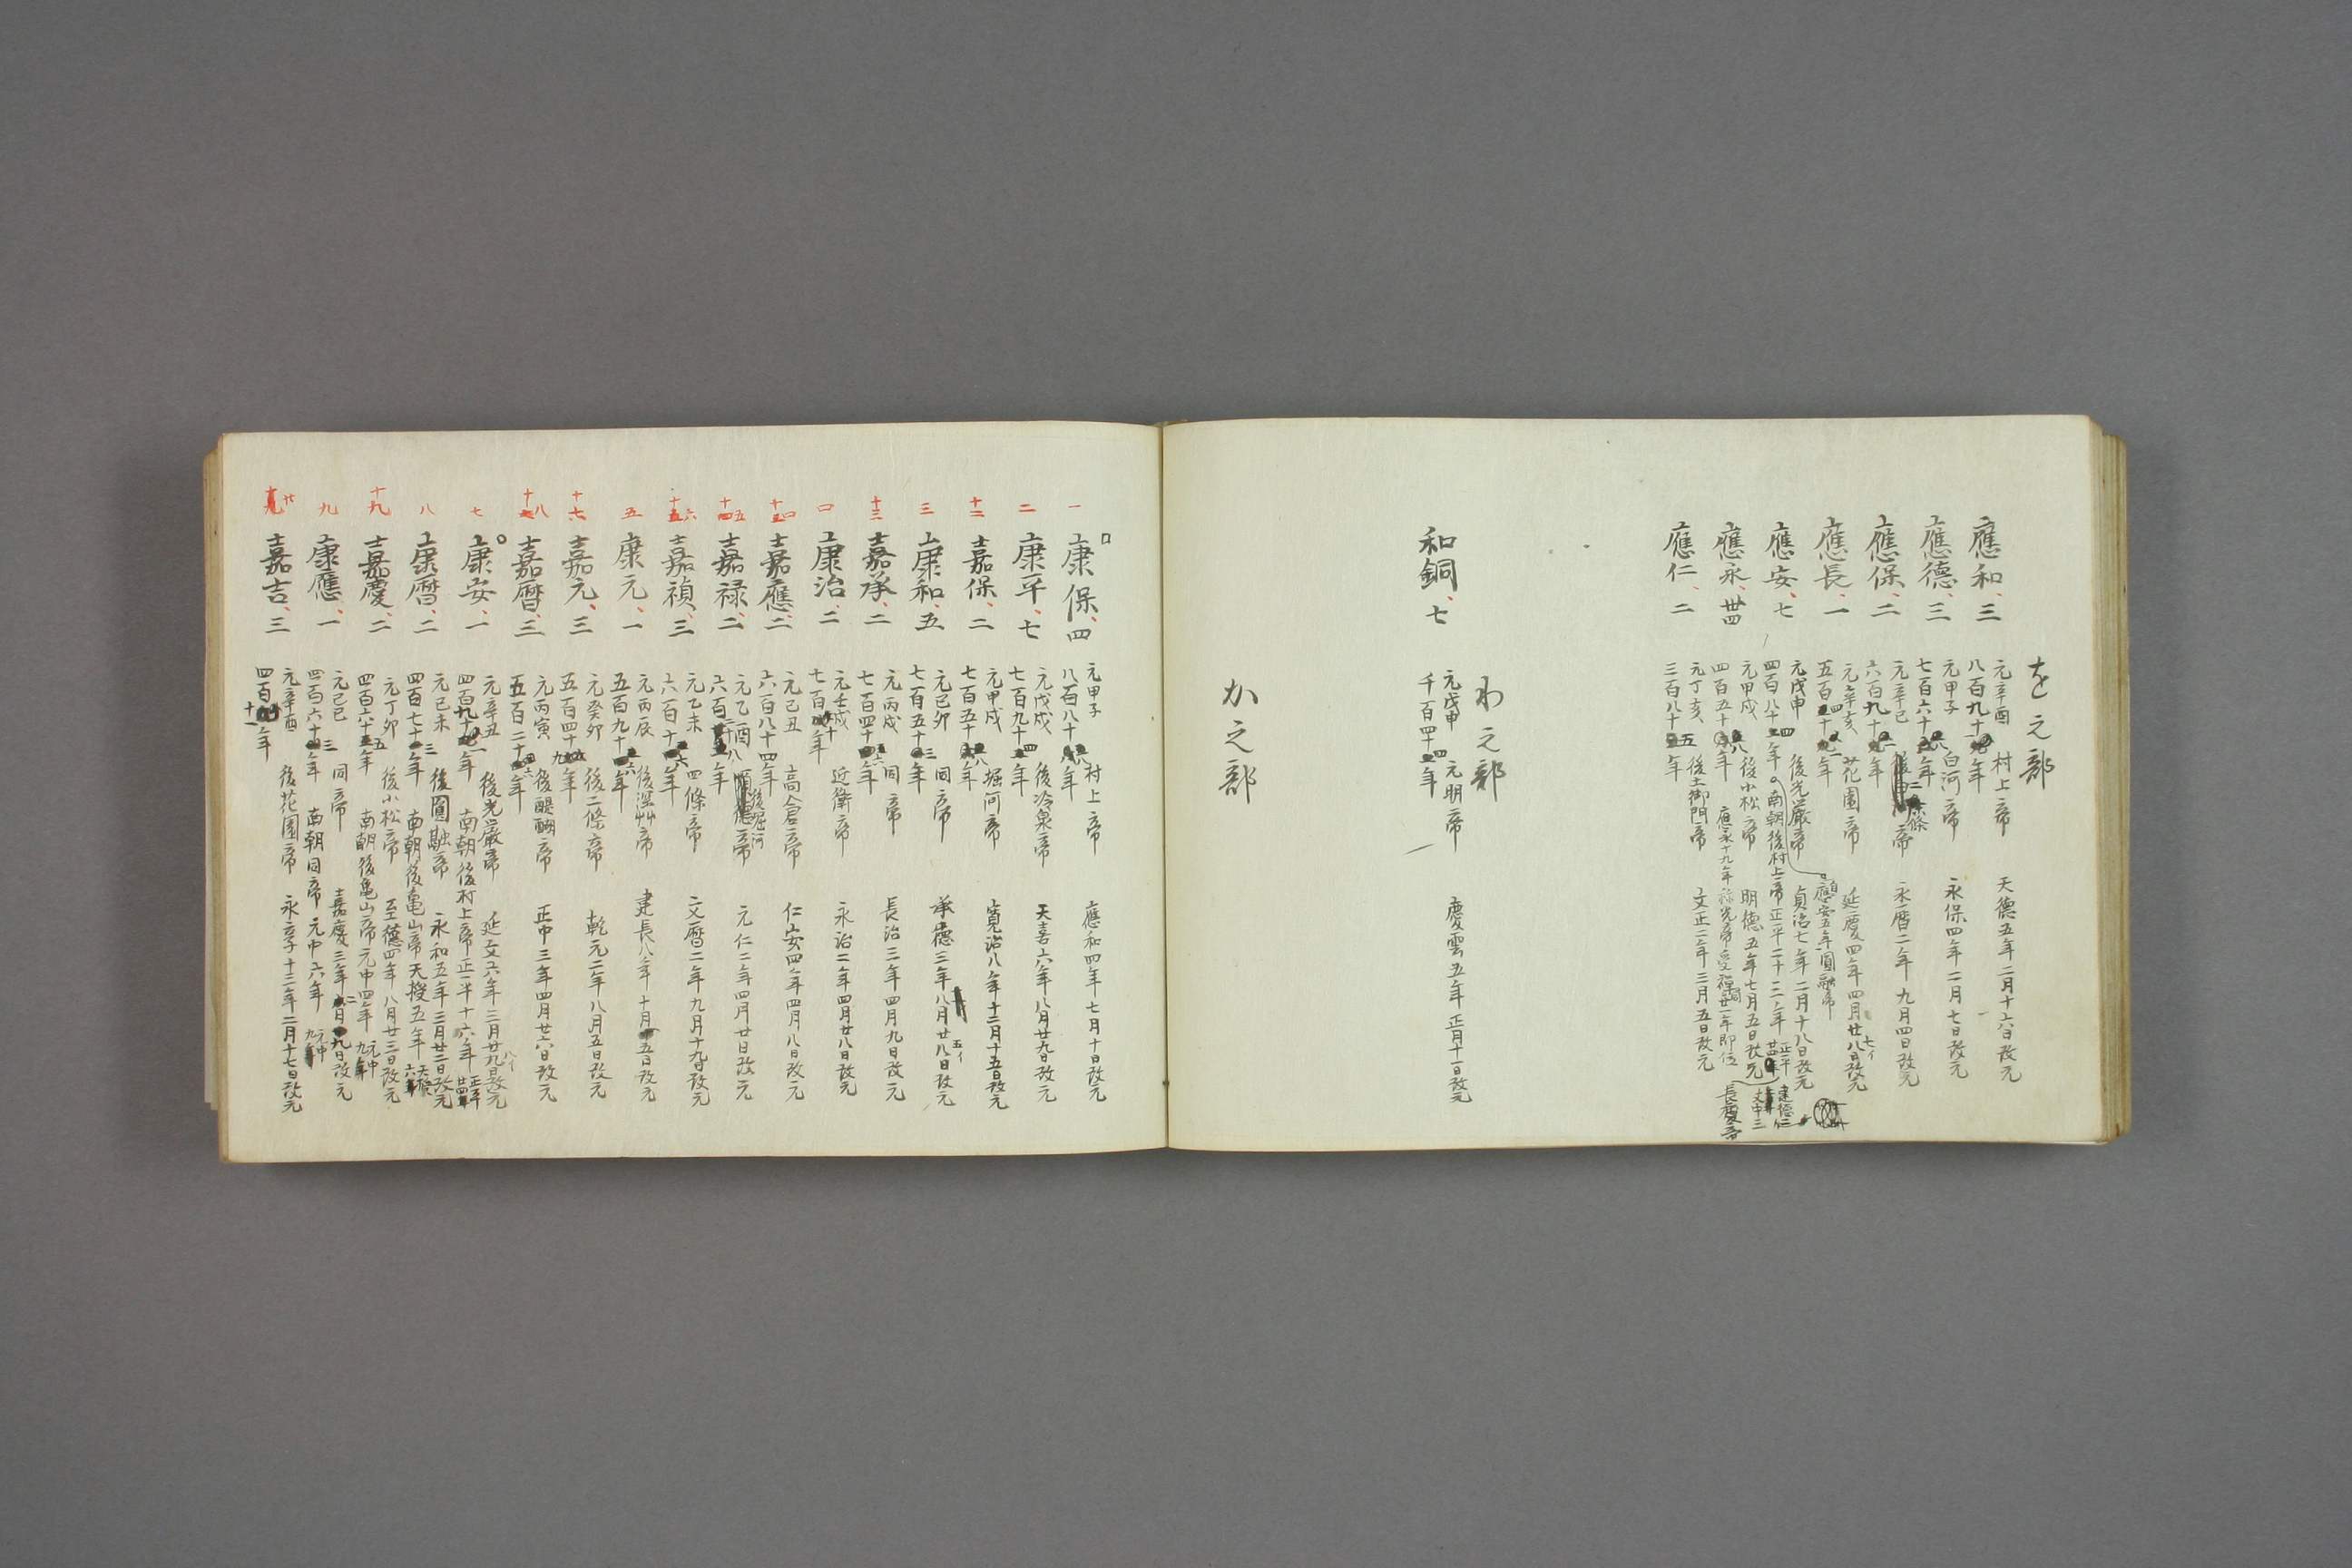 を之部
應和、三
元辛酉 村上帝 天德五年二月十六日改元
八百九十年
應德、三
元甲子 白河帝 永保四年二月七日改元
七百六十六年
應保、二
元辛巳 二條帝 永暦二年九月四日改元
六百九十年
應長、一
元辛亥 花園帝 延慶四年四月廿八日改元
五百四十年
應安、七
元戊申 後光嚴帝 貞治七年二月十八日改元
四百八十四年 南朝後村上帝正平二十三年
自應安五年圓融帝
應永、卅四
元甲戌 後小松帝 明德五年七月五日改元
四百五十八年 應永十九年称光帝受禅同廿一年即位
建德二
文中三
長慶帝
應仁、二
元丁亥 後土御門帝 文正二年三月五日改元
三百八十五年
わ之部
和銅、七
元戊申 元明帝 慶雲五年正月十一日改元
千百四十四年
か之部
一
康保、四
元甲子 村上帝 應和四年七月十日改元
八百八十八年
二
康平、七
元戊戌 後冷泉帝 天喜六年八月廿九日改元
七百九十四年
十二
嘉保、二
元甲戌 堀河帝 寛治八年十二月十五日改元
七百五十八年
三
康和、五
元己卯 同帝 承德三年八月廿八日改元
七百五十三年
十三
嘉承、二
元丙戌 同帝 長治三年四月九日改元
七百四十六年
四
康治、二
元壬戌 近衛帝 永治二年四月廿八日改元
七百十年
十四
嘉應、二
元己丑 高倉帝 仁安四年四月八日改元
六百八十四年
十五
嘉禄、二
元乙酉 後堀河帝 元仁二年四月廿日改元
六百二十八年
十六
嘉禎、三
元乙未 四條帝 文暦二年九月十九日改元
六百十六年
五
康元、一
元丙辰 後深艸帝 建長八年十月五日改元
五百九十六年
十七
嘉元、三
元癸卯 後二條帝 乾元二年八月五日改元
五百四十九年
十八
嘉暦、三
元丙寅 後醍醐帝 正中三年四月廿六日改元
五百二十六年
七
康安、一
元辛丑 後光嚴帝 延文六年三月廿九日改元
四百九十一年 南朝後村上帝正平十六年 正平廿四年
八
康暦、二
元己未 後圓融帝 永和五年三月廿二日改元
四百七十三年 南朝後亀山帝天授五年 天授六年
十九
嘉慶、二
元丁卯 後小松帝 至德四年八月廿三日改元
四百六十五年 南朝後亀山帝元中四年 元中九年
九
康應、一
元己巳 同帝 嘉慶三年二月九日改元
四百六十三年 南朝同帝 元中六年 元中九年
廿
嘉吉、三
元辛酉 後花園帝 永享十三年二月十七日改元
四百十一年